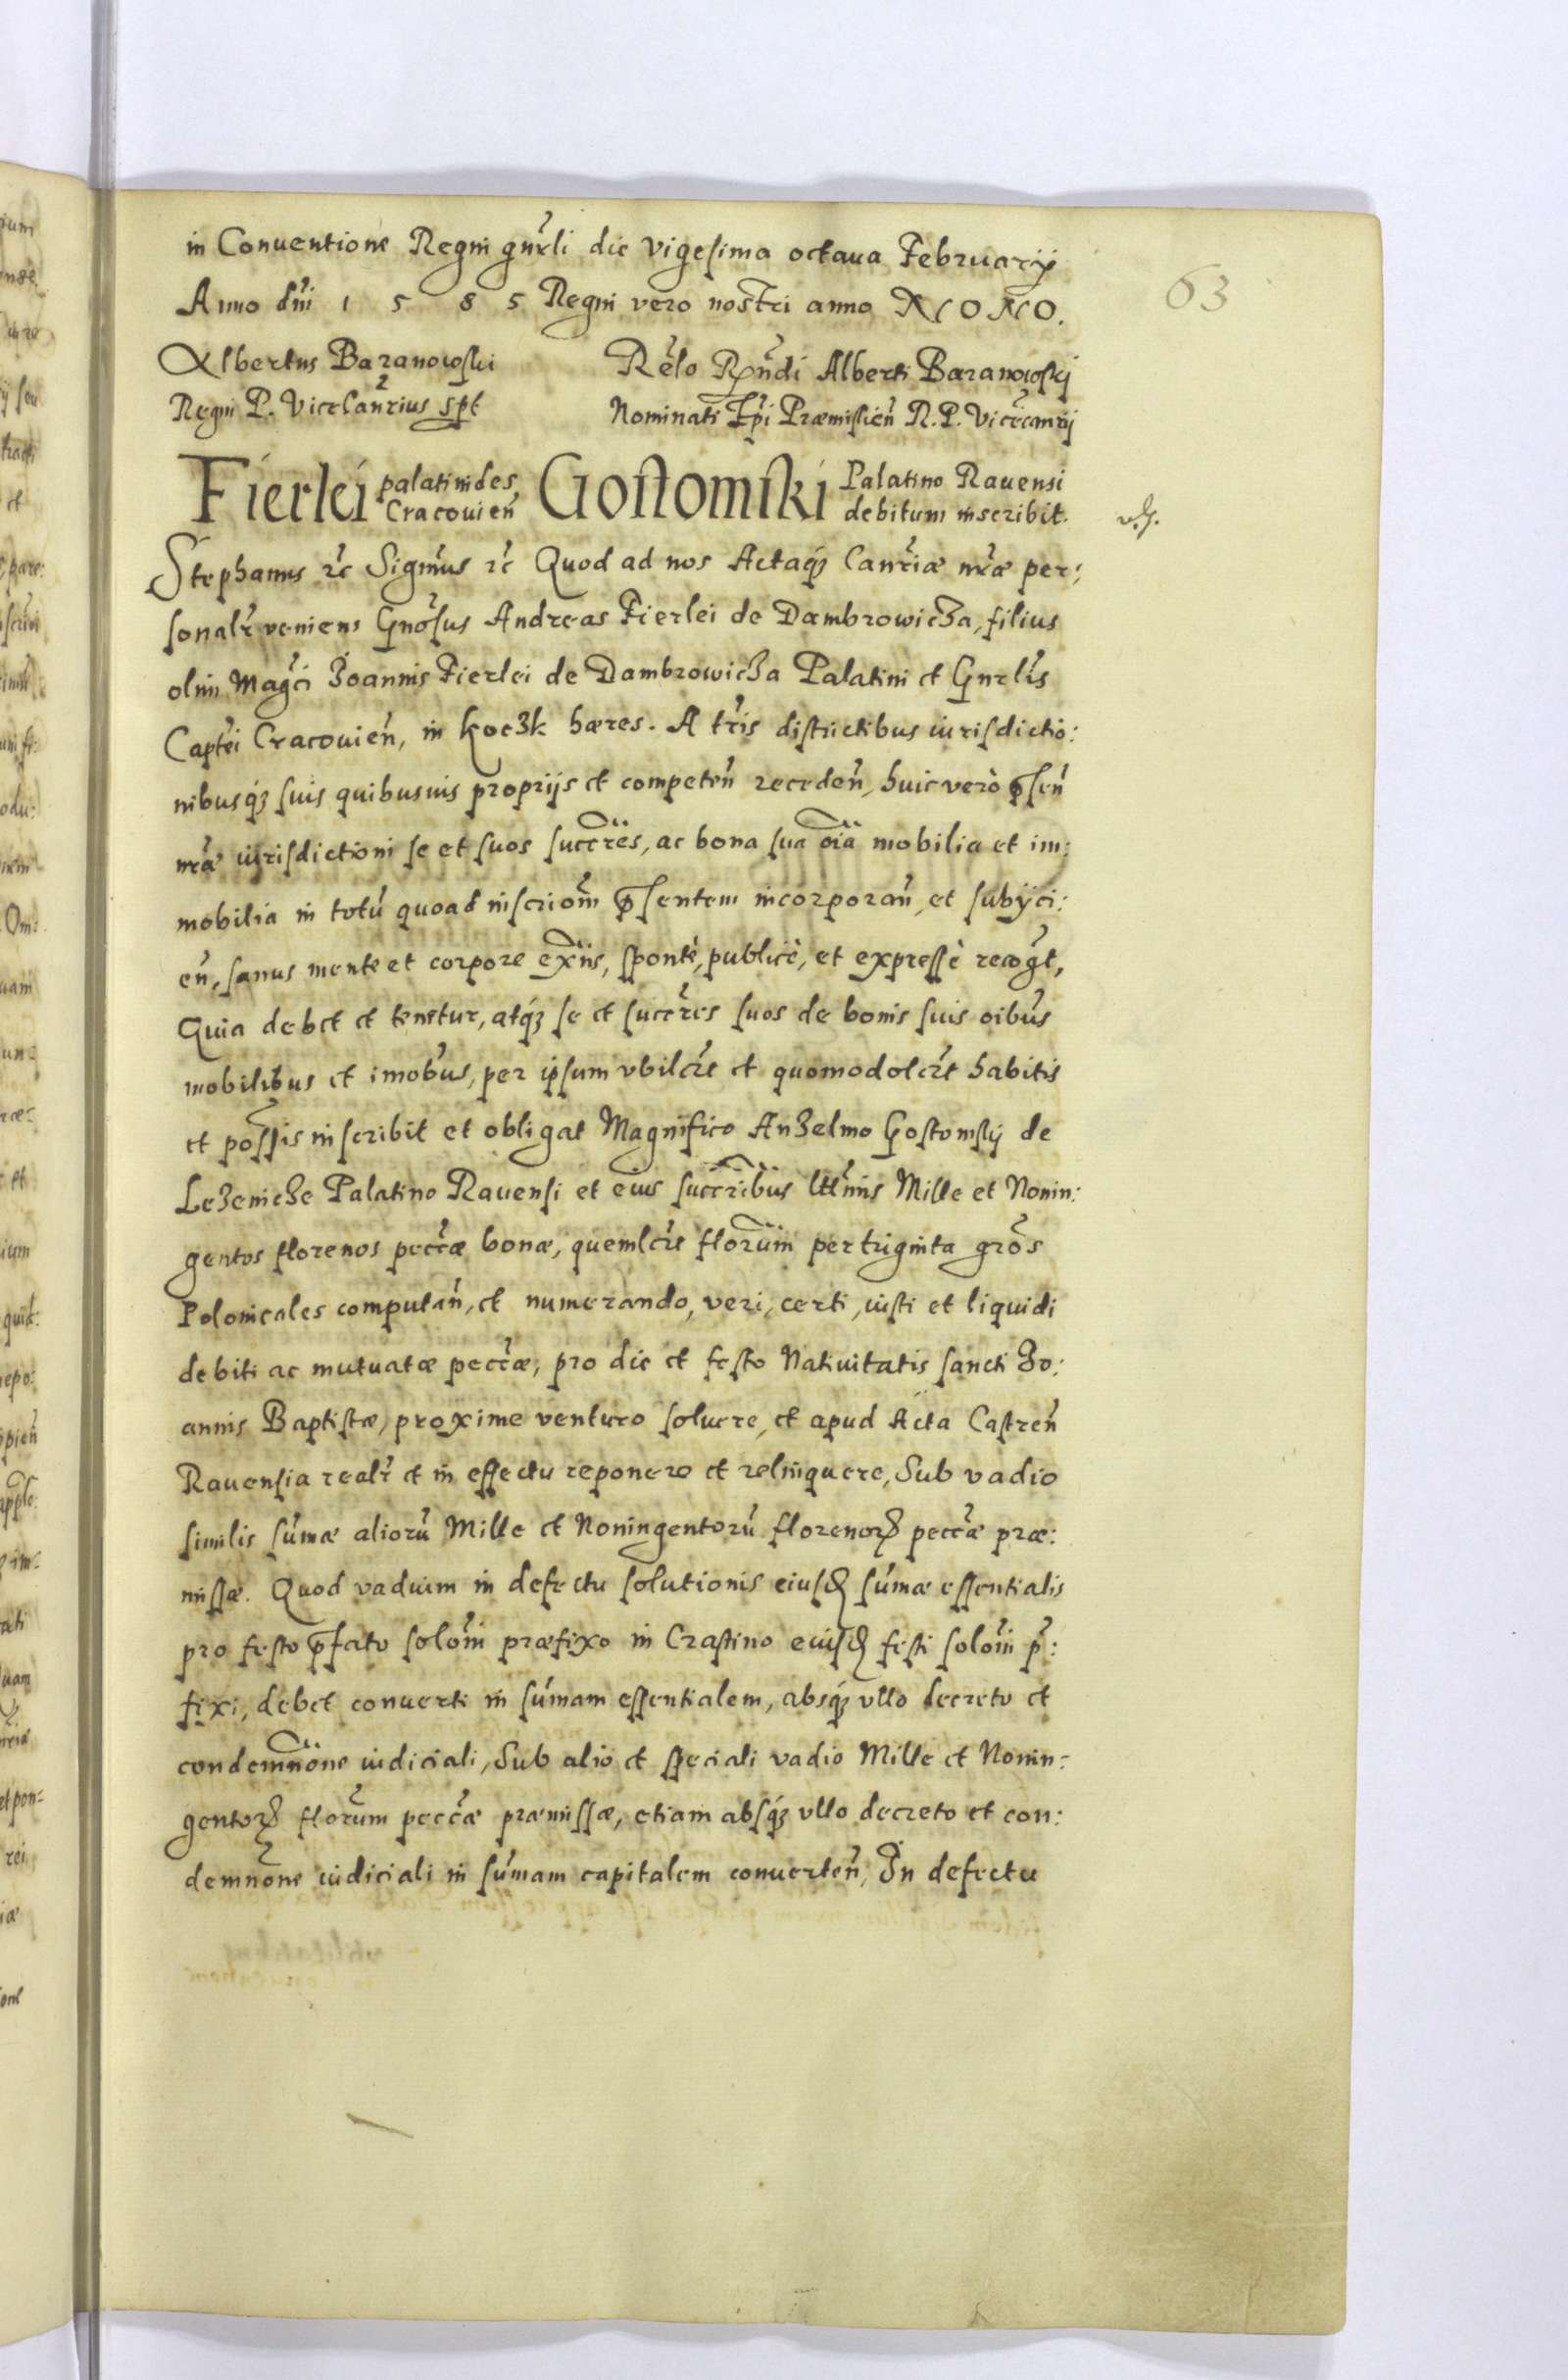 in Conuentione Regni gnrli die vigesima octaua Februarij
63
Anno dni 1 5 8 5 Regni vero nostri anno NONO.
Albertus Baranowski
Regni P. Vicecanrius spt
Relo Rndi Alberti Baranowskj
Nominati Epi Præmislien R. P. Vicecanrij
Fierlei palatinides Cracouien Gostomski Palatino Rauensi debitum inscribit.
Stephanus rc Sigmus rc Quod ad nos Actaq3 Canriæ nræ per:
sonalr veniens Gnosus Andreas Fierlei de Dambrowicza, filius
olim Magci Joannis Fierlei de Dambrowicza Palatini et Gnrlis
Captei Cracouien, in Koczk hæres. A tris districtibus iurisdictio:
nibusq3 suis quibusuis proprijs et competen receden, huic verò psen
nræ iurisdictioni se et suos succres, ac bona sua oia mobilia et im:
mobilia in totu quoad inscriom psentem incorporan, et subijci:
en, sanus mente et corpore exns, spontè, publicè, et expressè recogt,
Quia debet et tenetur, atq3 se et succres suos de bonis suis oibus
mobilibus et imobus, per ipsum vbilcrt et quomodolcrt habitis
et possis inscribit et obligat Magnifico Anzelmo Gostomskj de
Lezenicze Palatino Rauensi et eius succribus lttimis Mille et Nonin:
gentos florenos peccæ bonæ, quemlcrt florum per triginta gros
Polonicales computan, et numerando, veri, certi, iusti et liquidi
debiti ac mutuatæ peccæ, pro die et festo Natiuitatis sancti Jo:
annis Baptistæ, proxime venturo soluere, et apud Acta Castren
Rauensia realr et in effectu reponere et relinquere, Sub vadio
similis sumæ alioru Mille et Noningentoru florenor peccæ præ:
missæ. Quod vadium in defectu solutionis eiusd sumæ essentialis
pro festo pfato solom præfixo in Crastino eiusd festi solom p:
fixi, debet conuerti in sumam essentialem, absq3 vllo decreto et
condemnone iudiciali, Sub alio et speciali vadio Mille et Nonin:
gentor florum peccæ præmissæ, etiam absq3 vllo decreto et con:
demnone iudiciali in sumam capitalem conuerten, In defectu